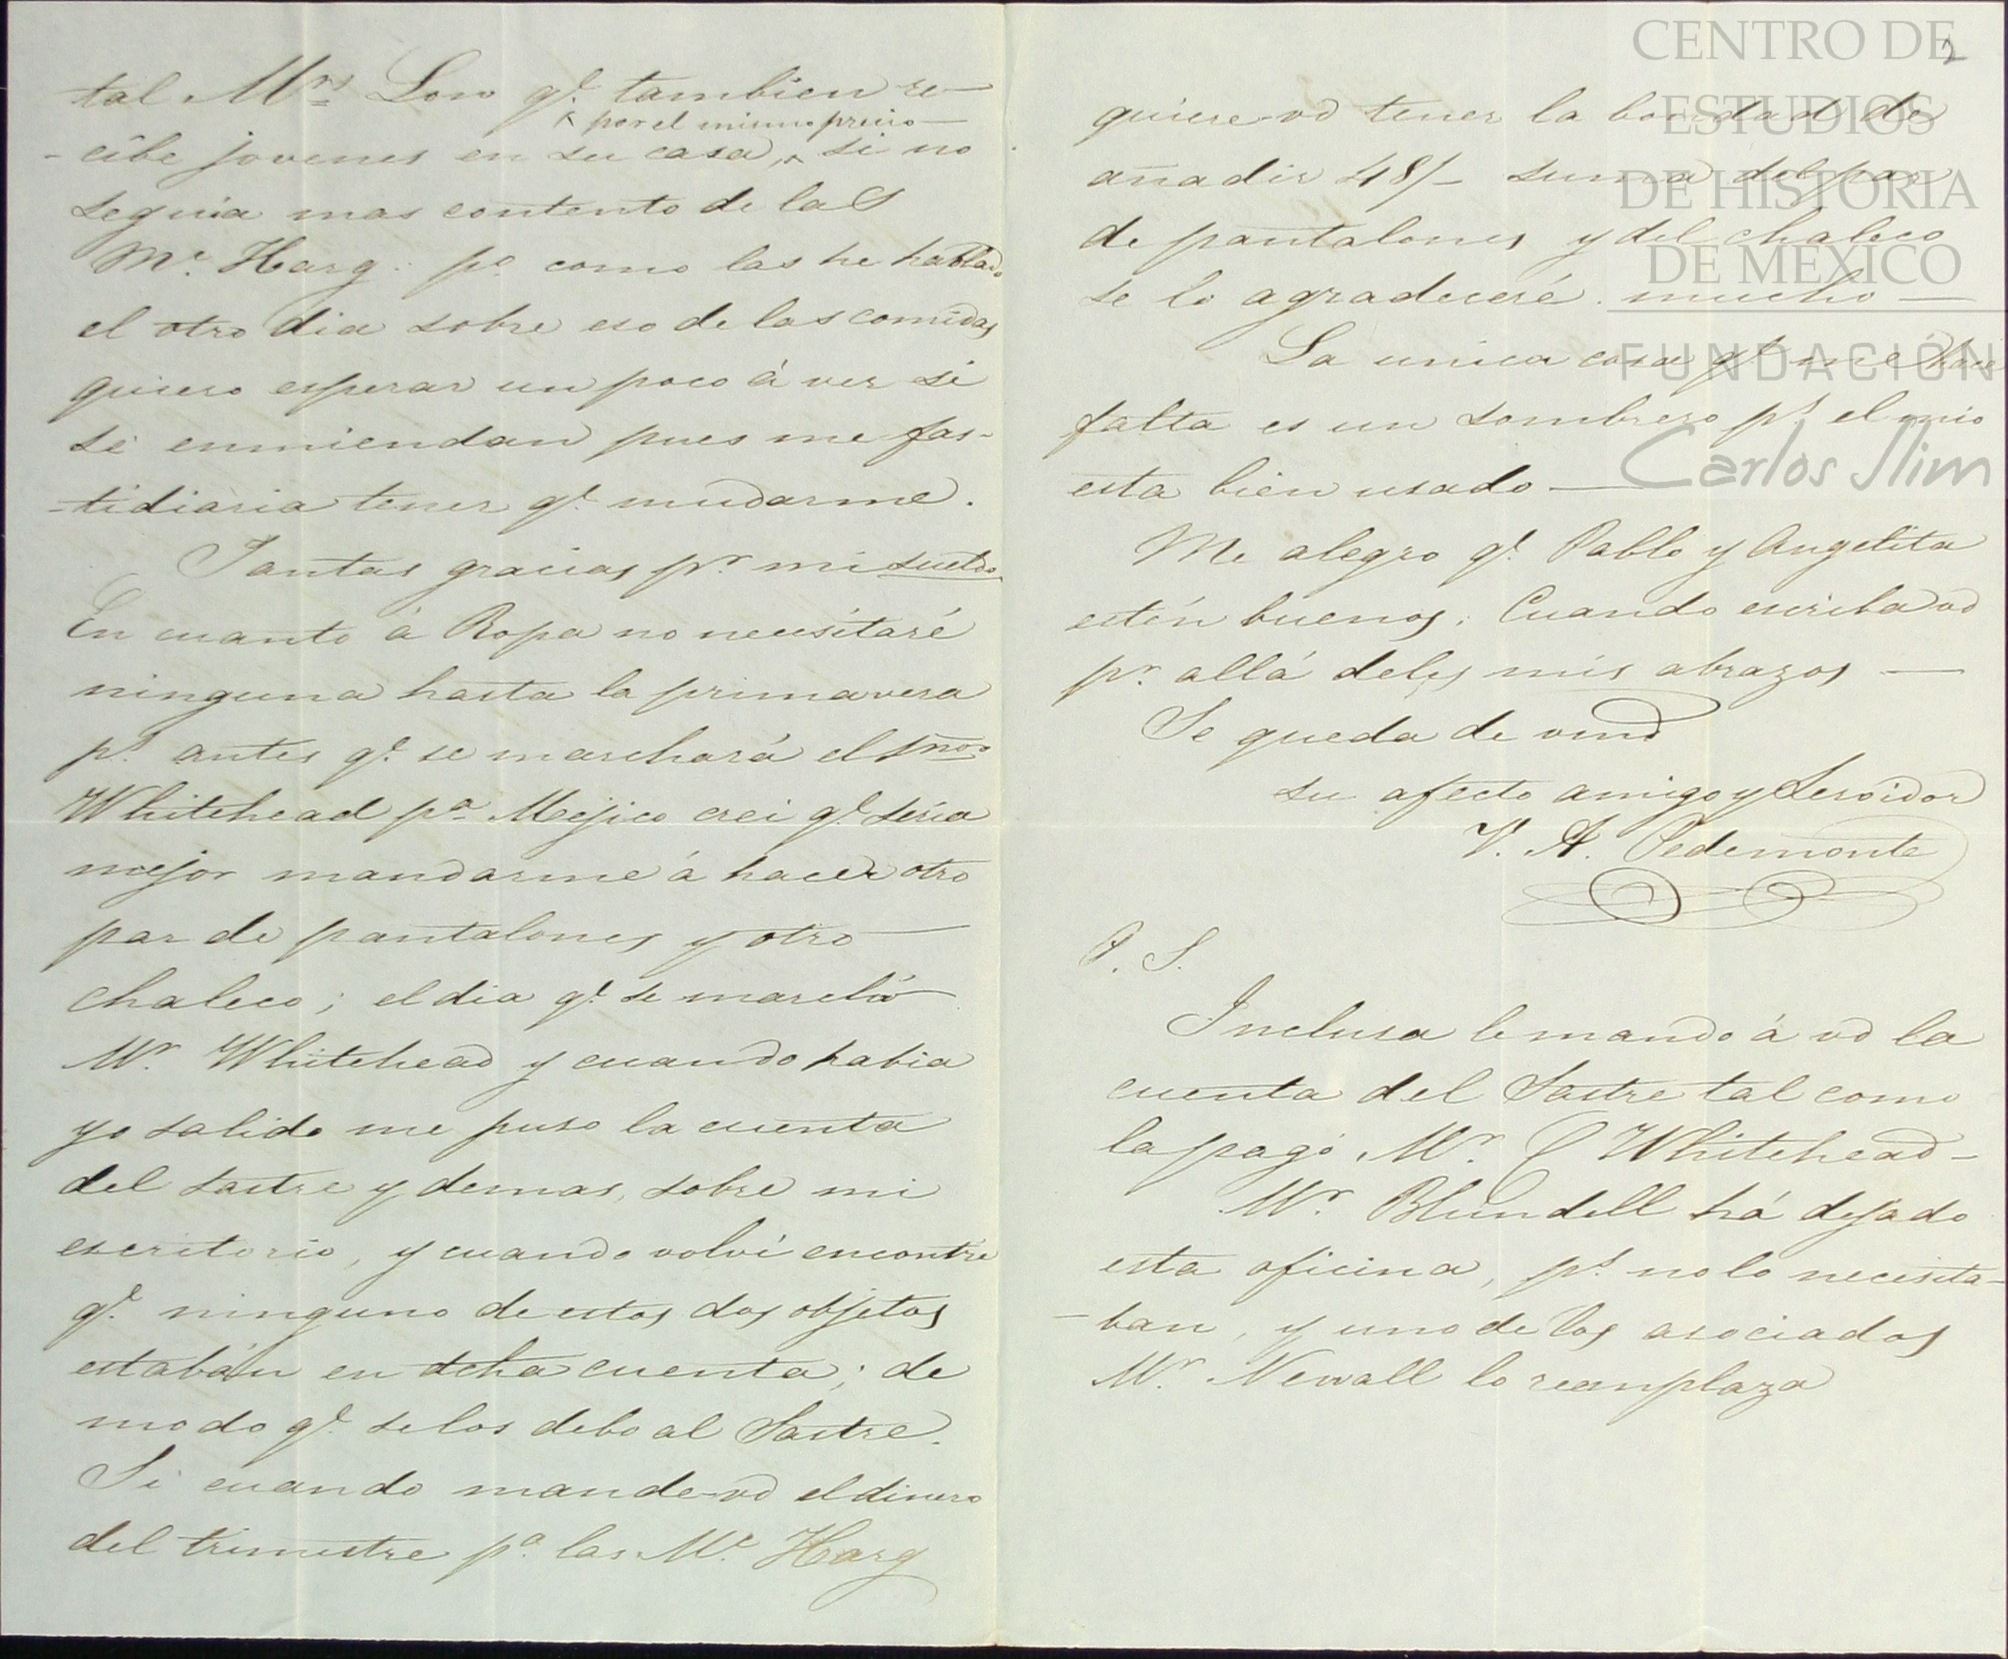 tal Mrs Low qe. tambien re-
^ por el mismo precio —
- cibe jovenes en su casa, ^ si no
seguia mas contento de la S
Mc. Harg. po. como las he hablado
el otro dia sobre eso de las comidas
quiero esperar un poco á ver si
se enmiendan pues me fas-
-tidiaria tener qe. mudarme.
Tantas gracias pr. mi sueldo
En cuanto á Ropa no necesitaré
ninguna hasta la primavera
ps. antes qe. se marchará el
Whitehead pa. Mejico crei qe. seria
mejor mandarme á hacer otro
par de pantalones y otro —
chaleco; el dia qe. se marchó —
Mr. Whitehead y cuando habia
yo salido me puso la cuenta
del sastre y demas, sobre mi
escritorio, y cuando volvi encontré
qe. ninguno de estos dos objetos
estabán en dcha cuenta; de
modo qe. se los debo al Sastre.
Si cuando mande vd el dinero
del trimestre pa. las Mc. Harg
2
quiere vd tener la bondad de
añadir 48/- suma del par
de pantalones y del chaleco
se lo agradeceré mucho —
La unica cosa qe. me hace
falta es un sombrero ps. el mio
esta bien usado —
Me alegro qe. Pablo y Angelita
estén buenos. Cuando escriba vd
pr. allá deles mis abrazos —
Se queda de vmd
su afecto amigo y Servidor
V. A. Pedemonte
P. S.
Inclusa le mando á vd la
cuenta del Sastre tal como
la pagó Mr. C Whitehead -
Mr. Blundell há dejado
esta oficina, ps. no lo necesita-
- ban, y uno de los asociados
Mr. Newall lo reemplaza
CENTRO DE
ESTUDIOS
DE HISTORIA
DE MÉXICO
FUNDACIÓN
Carlos Slim